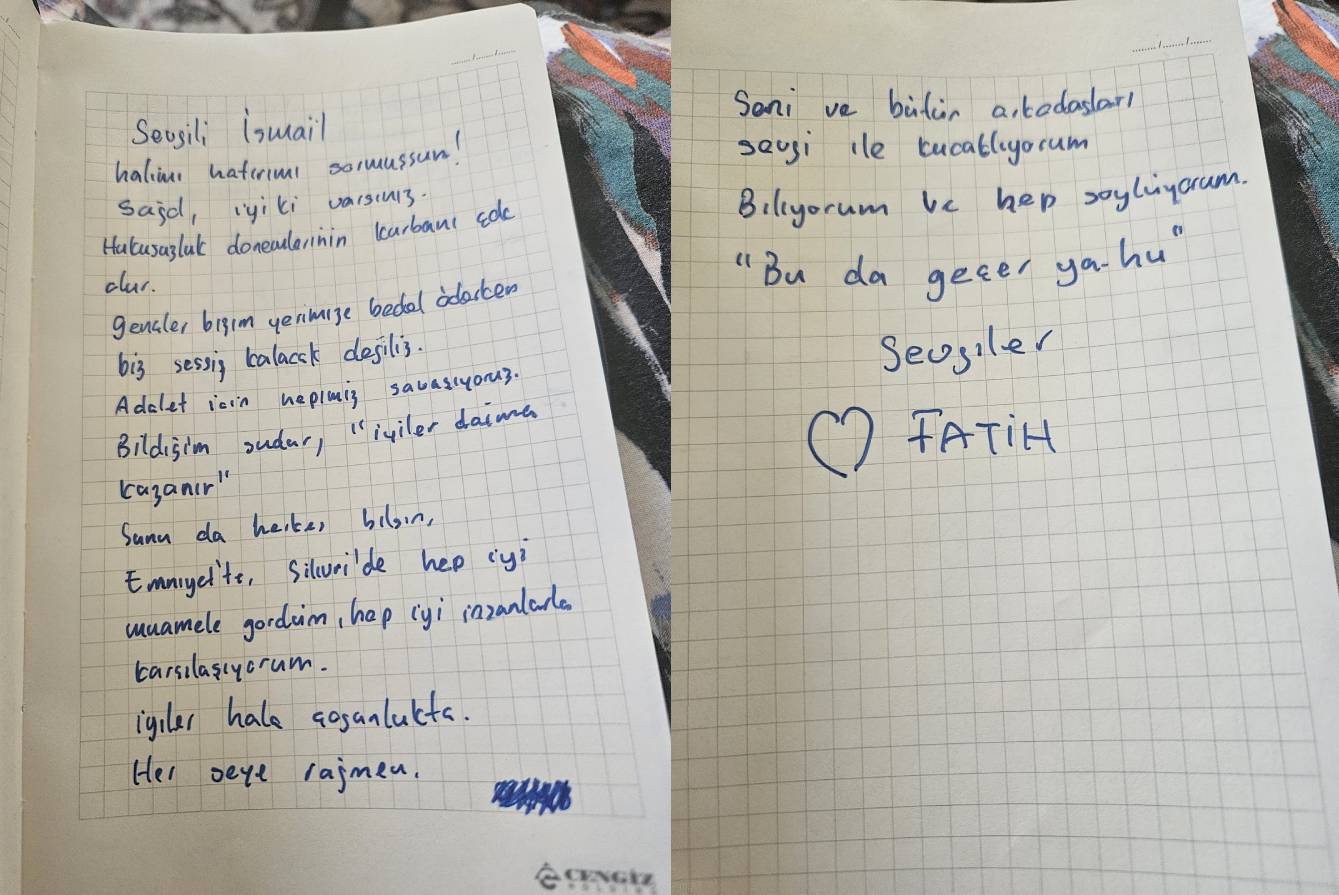 Sevgili İsmail
halimi hatırımı sormuşsun!
Sağol, iyi ki varsınız.
Hukusuzluk donemlerinin kurbanı çok
olur.
gençler bizim yerimize bedel öderken
biz sessiz kalacak değiliz.
Adalet için hepimiz savaşıyoruz.
Bildiğim şudur, "iyiler daima
kazanır"
Şunu da herkes bilsin,
Emniyet'te, Silivri'de hep iyi
muamele gördüm, hep iyi insanlarla
karşılaşıyorum.
iyiler hala çoğunlukta.
Her şeye rağmen.
CENGİZ
HOLDİNG
Seni ve bütün arkadaşları
sevgi ile kucaklıyorum
Biliyorum ve hep söylüyorum.
"Bu da geçer ya-hu"
Sevgiler
FATİH